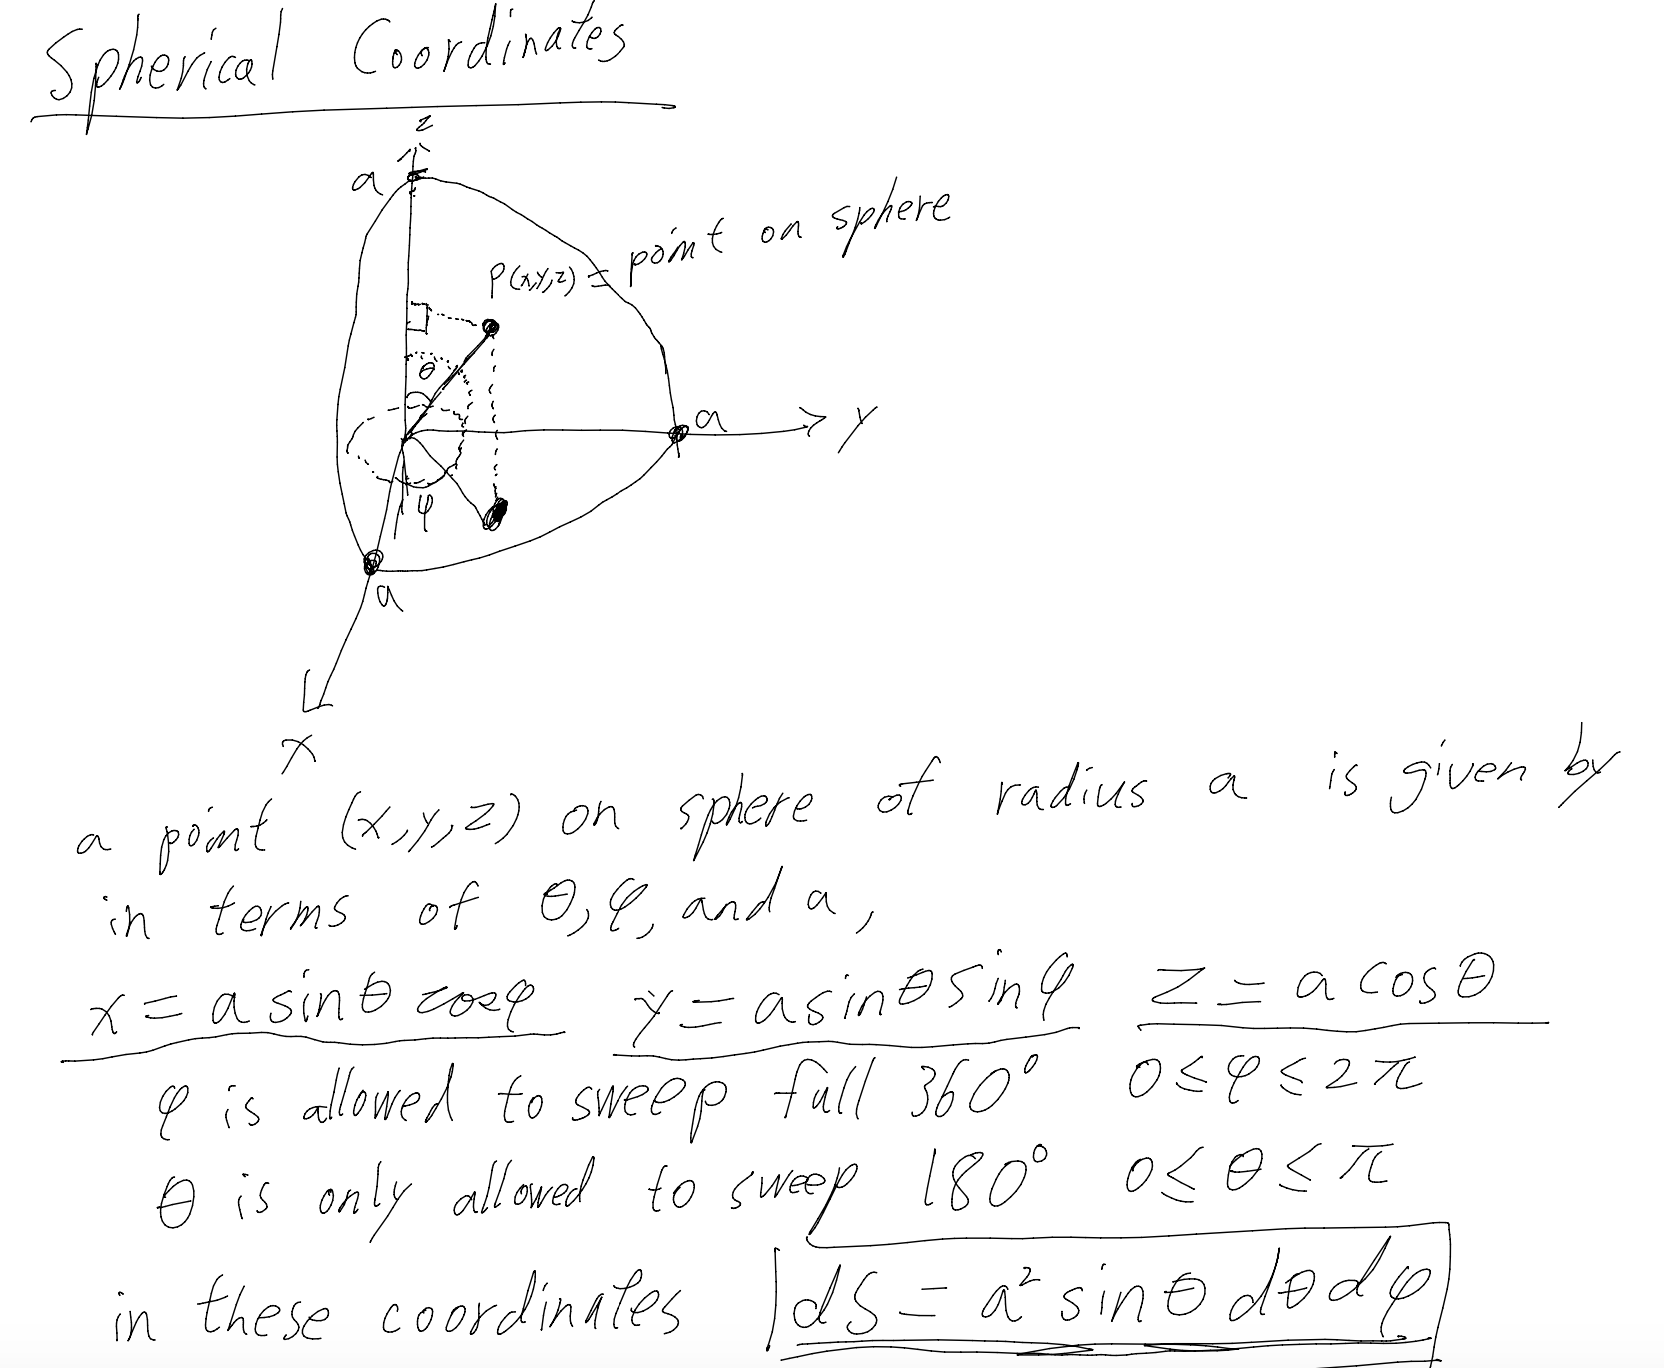 Spherical Coordinates
z
a
P(x,y,z) = point on sphere
θ
a
y
φ
a
x
a point (x,y,z) on sphere of radius a is given by
in terms of θ, φ, and a,
x = a sinθ cosφ y = a sinθ sinφ z = a cosθ
φ is allowed to sweep full 360° 0 ≤ φ ≤ 2π
θ is only allowed to sweep 180° 0 ≤ θ ≤ π
in these coordinates dS = a² sinθ dθ dφ